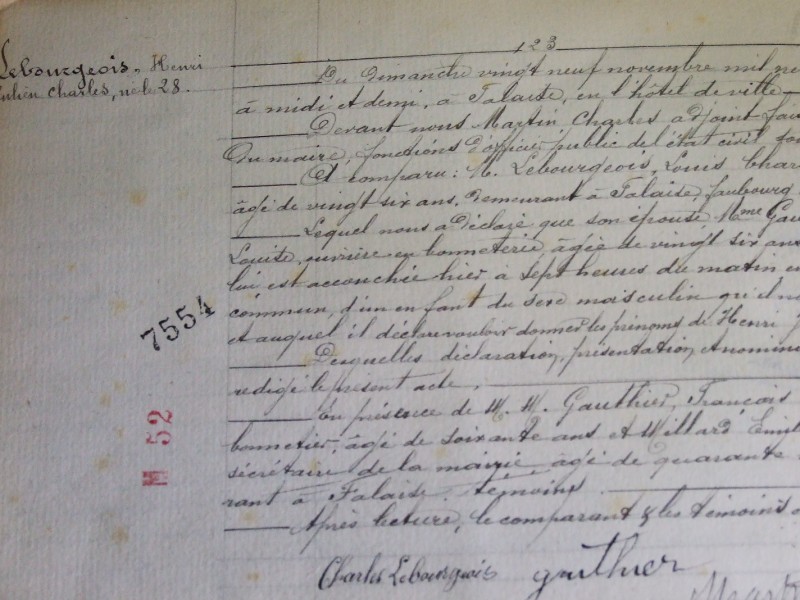 123
Lebourgeois, Henri
Julien Charles, né le 28.
Du Dimanche vingt neuf novembre mil
à midi et demi, à Falaise, en l'hôtel de ville
Devant nous Martin Charles adjoint
Du maire, fonctions d'officier public de l'état civil
A comparu : M. Lebourgeois, Louis
âgé de vingt six ans, demeurant à Falaise, faubourg
Lequel nous a déclaré que son épouse Mme
Louise, ouvrière en bonneterie âgée de vingt six ans
lui est accouchée hier à sept heures du matin
commun, d'un enfant du sexe masculin qu'il
et auquel il déclare vouloir donner les prénoms de Henri
Desquelles déclaration, présentation, et
redigé le présent acte.
En présence de M. M. Gauthier, François
bonnetier, âgé de soixante ans et Willard
sécrétaire de la mairie, âgé de quarante
rant à Falaise, témoins
Après lecture, le comparant & les témoins
Charles Lebourgeois gauthier
7554
M 52